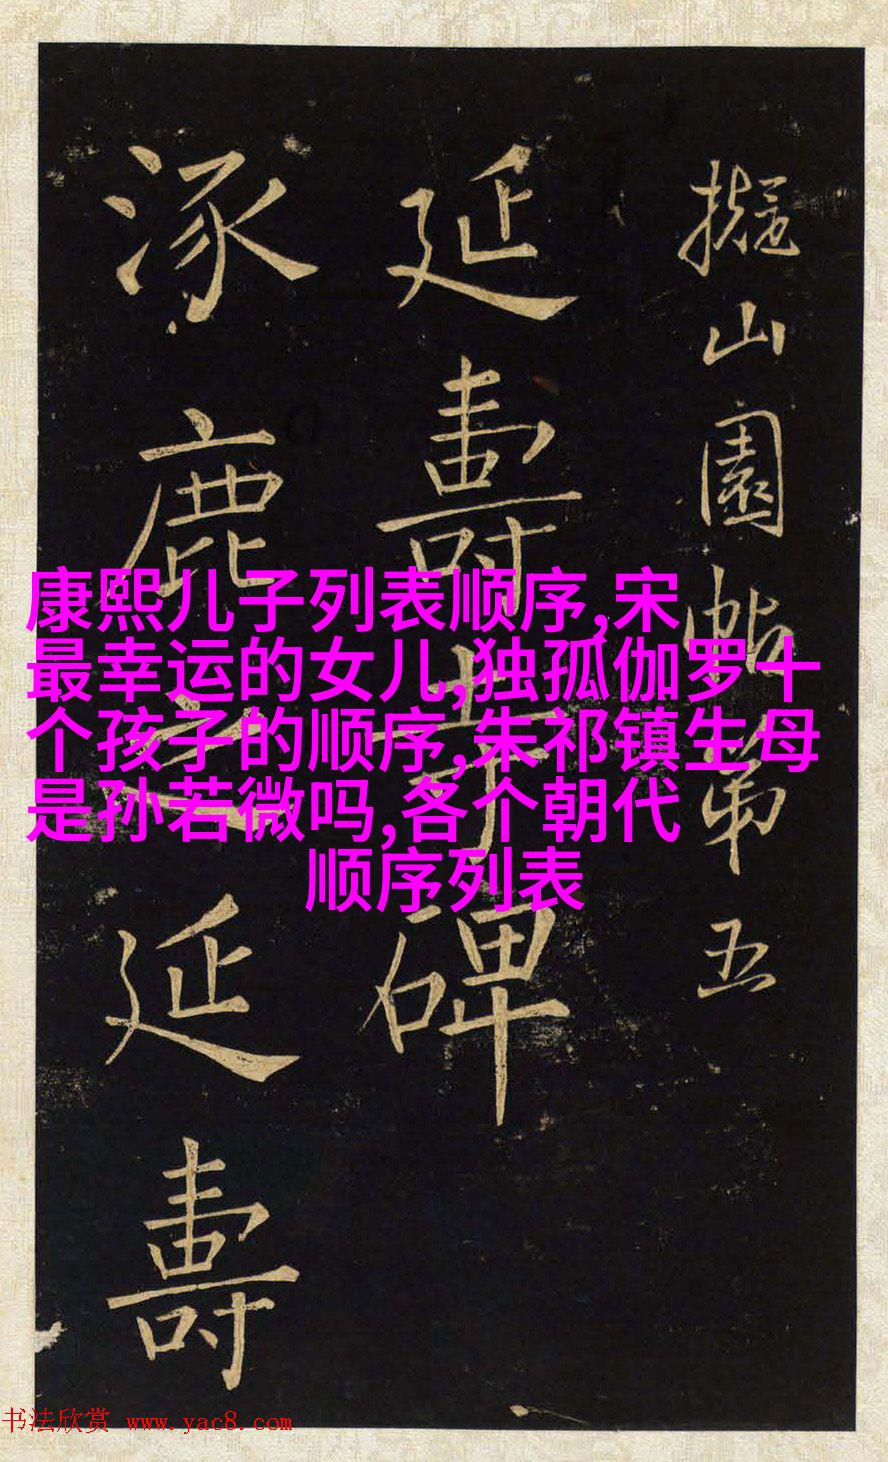 擬山園帖第五
延壽寺碑
涿鹿之延壽
康熙儿子列表顺序,宋
最幸运的女儿,独孤伽罗十
个孩子的顺序,朱祁镇生母
是孙若微吗,各个朝代
顺序列表
书法欣赏 www.yac8.com